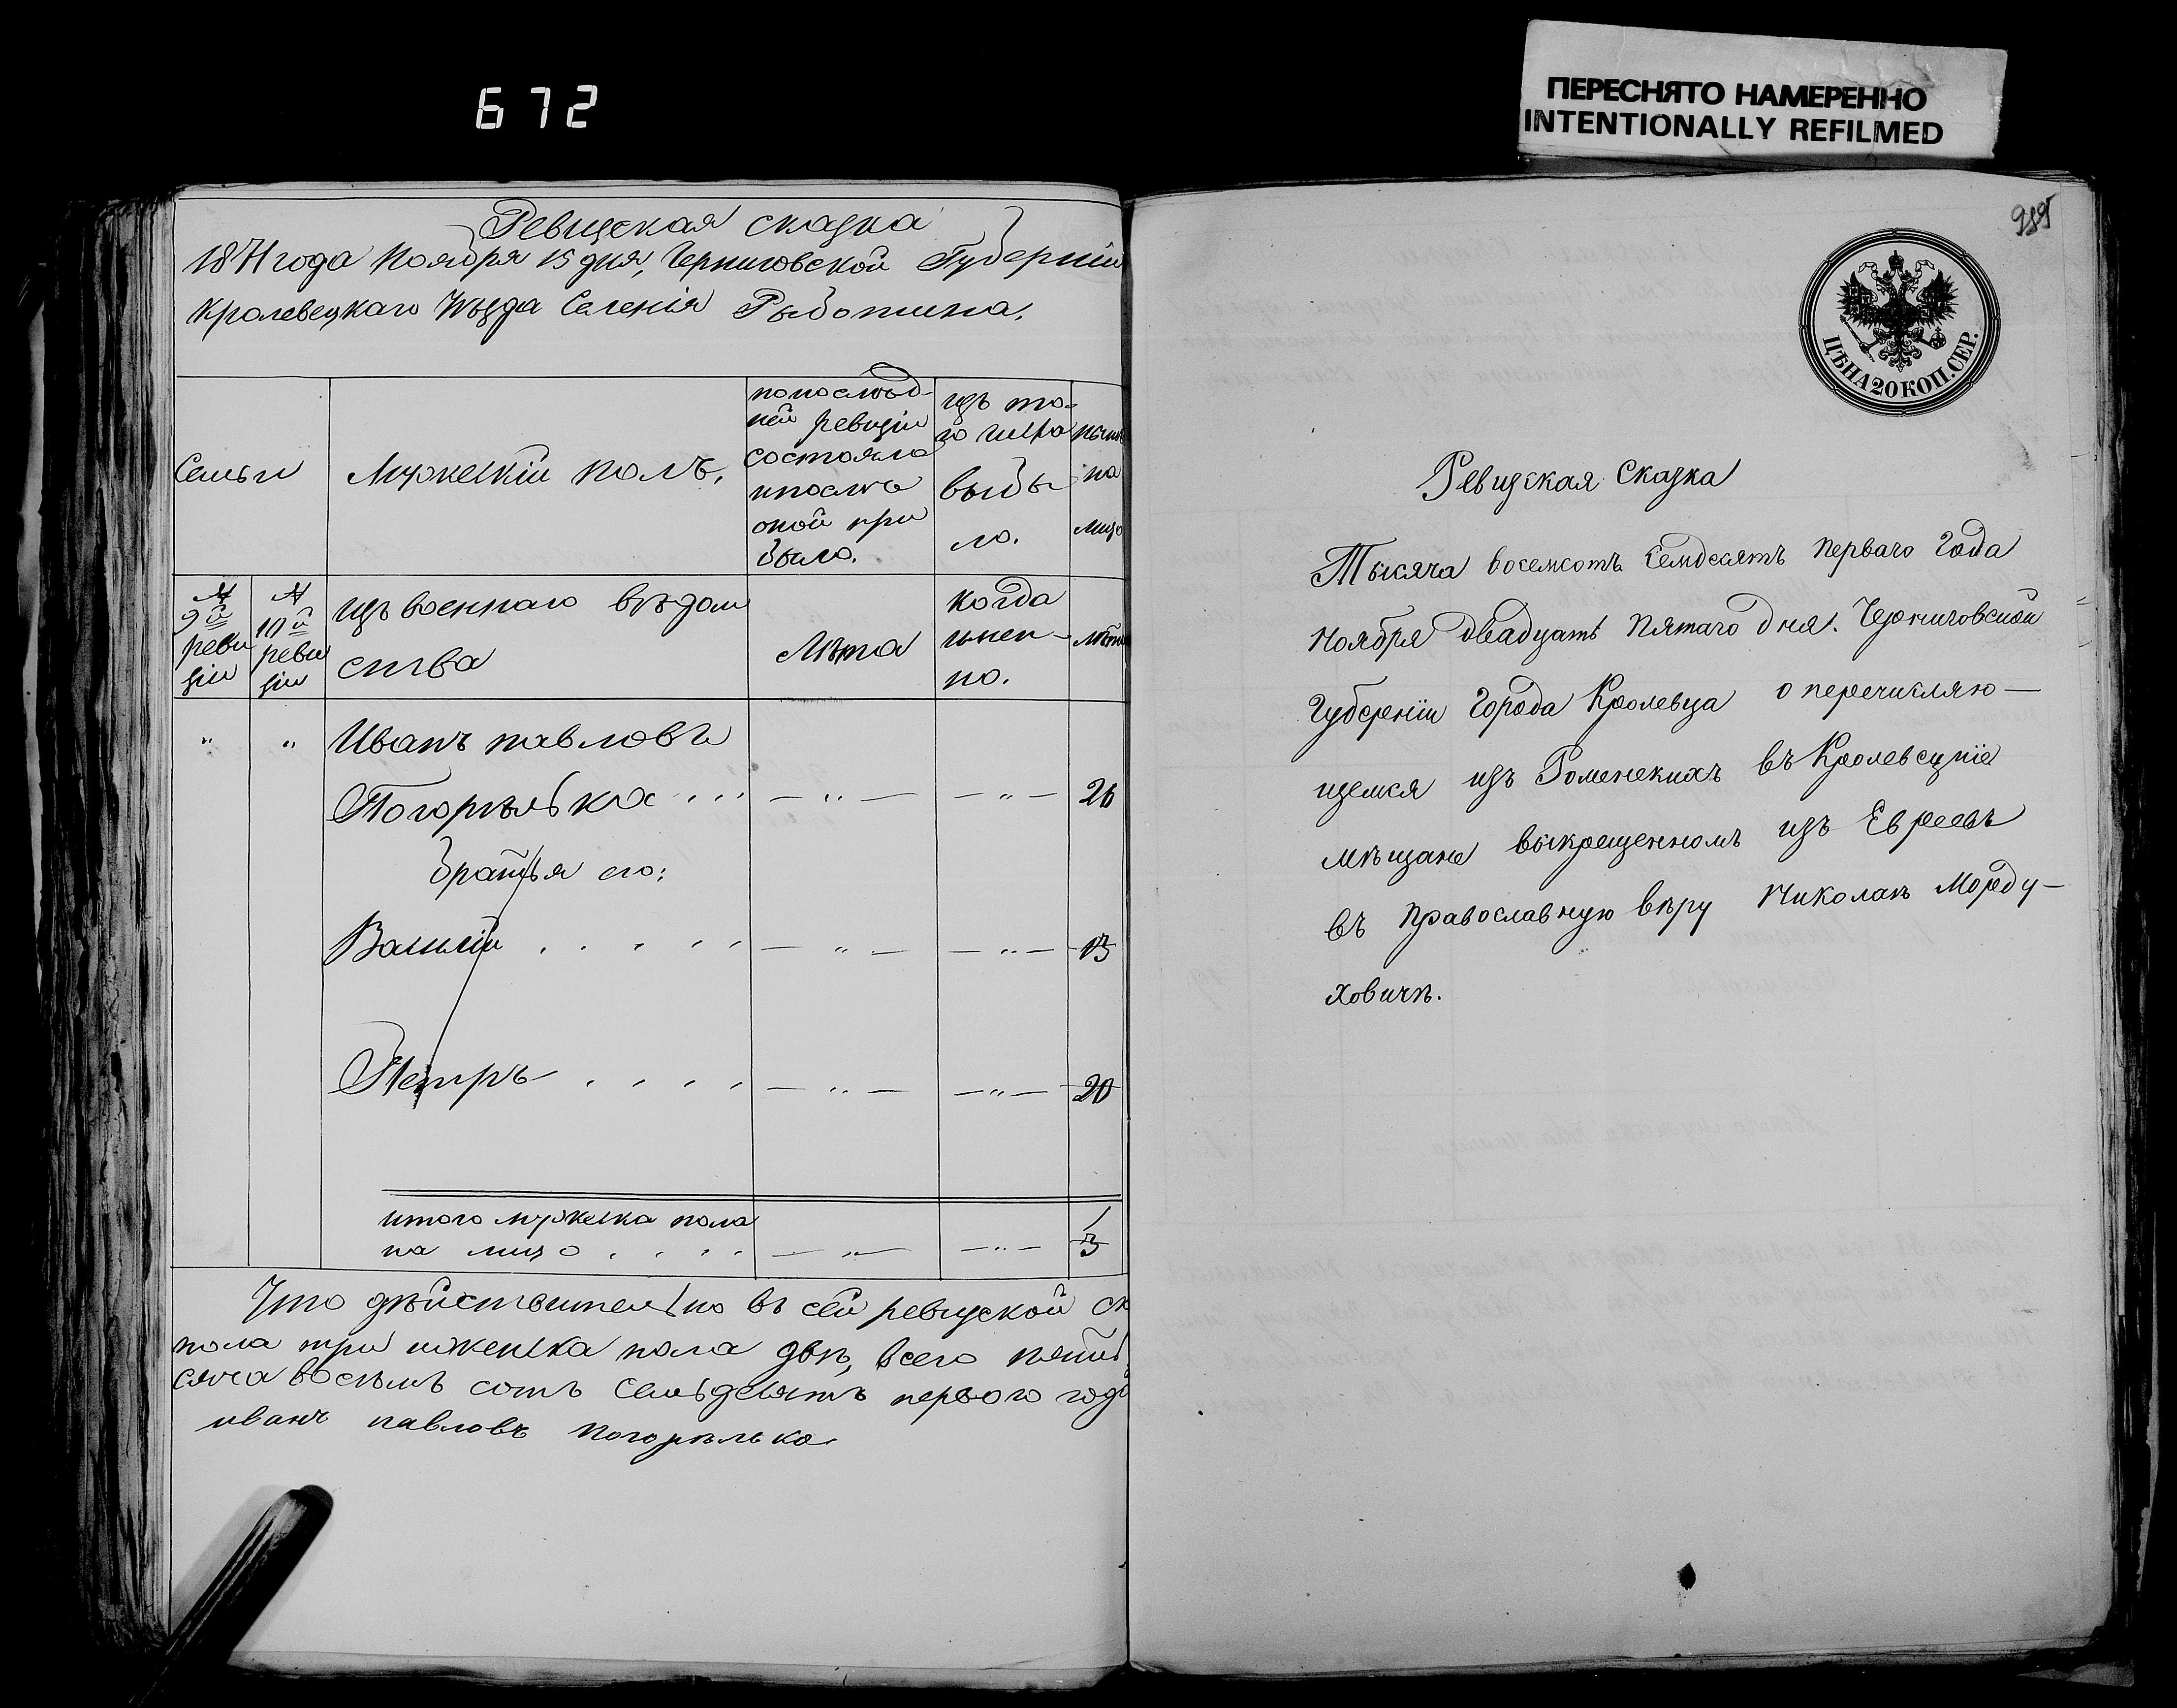 672
ПЕРЕСНЯТО НАМЕРЕННО
INTENTIONALLY REFILMED
Ревизская сказка
1871 года Ноября 15 дня, Черниговской Губерніи
Кролевецкаго Уѣзда Селенія Рыботина.
Семьи
Мужескій полъ.
по послѣд-
ней ревизіи
состояло
и послѣ
оной при
было.
изъ то-
го числа
выбы
ло.
нынѣ
на
лицо
№
9й
реви
зіи
№
10й
реви
зіи
изъ военнаго вѣдом
ства
Лѣта
когда
имен-
но.
лѣта
" " Иванъ павловъ
Погорѣлько . . . — " — — " — 26
братья его:
Василій . . . . . — " — — " — 13
Петръ . . . . — " — — " — 20
итого мужеска пола
на лицо . . . . — " — — " — 1
3
Что дѣйствительно въ сей ревизской ск
пола три и женска пола двѣ, всего пять
сяча восемъ сотъ семьдесятъ первого года
иванъ павловъ погорѣлько
989
ЦѢНА 20 КОП. СЕР.
Ревизская Сказка
Тысяча восемсотъ Семдесятъ Перваго Года
Ноября двадцать Пятаго дня. Черниговской
Губерніи Города Кролевца о перечисляю—
щемся изъ Роменскихъ въ Кролевецкіе
мѣщане выкрещенномъ изъ Евреевъ
въ Православную вѣру Николаѣ Морду—
ховичѣ.